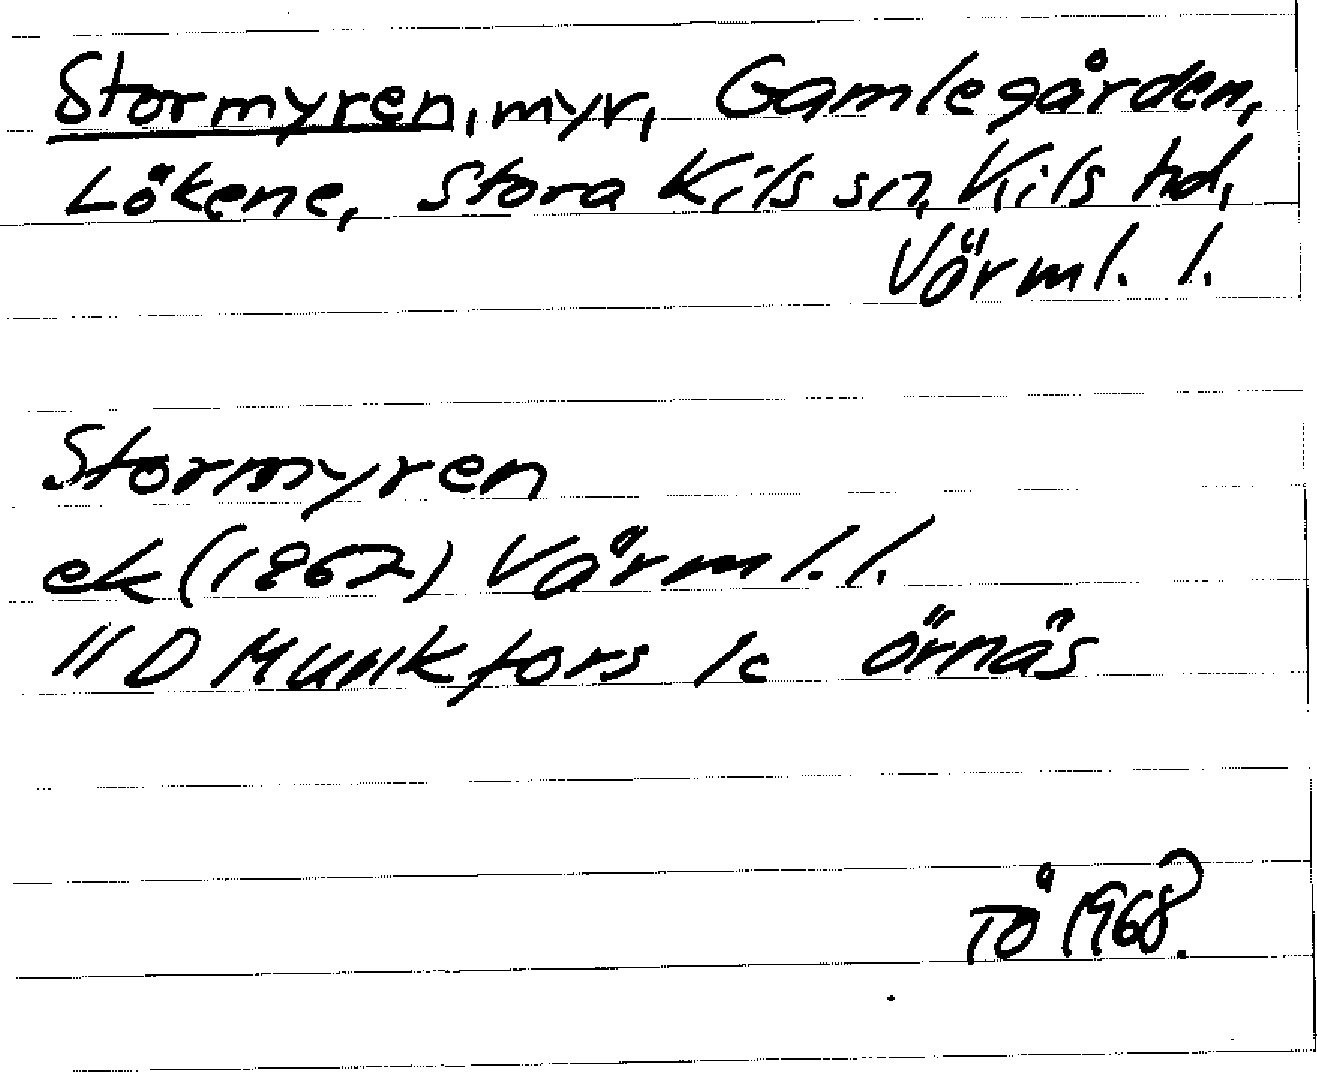 Stormyren, myr, Gamlegården,
Lökene, Stora Kils sn, Kils hd,
Värml. l.
Stormyren
ek (1862) Värml. l.
11 D Munkfors 1c Örnäs
TÖ 1968.